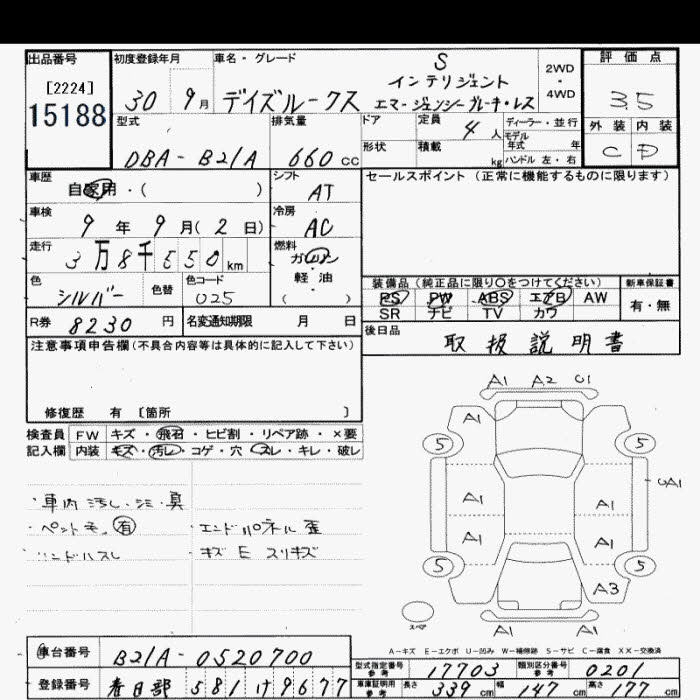 出品番号 初度登録年月 車名・グレード 評価点
[2224]
15188
30 9月 デイズルークス S
インテリジェント
エマージェンシーブレーキ・レス
2WD
・
4WD
3.5
型式 排気量 ドア 定員 4 人 ディーラー・並行 外装 内装
モデル
年式 年
DBA-B21A 660 cc 形状 積載 kg ハンドル 左・右 C D
車歴 シフト セールスポイント (正常に機能するものに限ります)
自家用・( ) AT
車検 冷房
9 年 9 月( 2 日) AC
走行 燃料
3万8千550 km ガソリン
・
軽油
( )
色 シルバー 色替 色コード 025
装備品 (純正品に限り〇をつけてください) 新車保証書
PS PW ABS エアB AW 有・無
SR ナビ TV カワ
R券 8230 円 名変通知期限 月 日
後日品 取扱説明書
注意事項申告欄 (不具合内容等は具体的に記入して下さい)
修復歴 有 〔箇所 〕
検査員 FW キズ・飛石・ヒビ割・リペア跡・×要
記入欄 内装 キズ・汚レ・コゲ・穴・スレ・キレ・破レ
・車内汚レ・シミ・臭
・ペット毛 有 ・エンドパネル歪
・キズ E スリキズ
A1 A2 U1
A1
5 5
A1 A1 UA1
A1 A1
5 5
A3
スペア
A1 A1
A-キズ E-エクボ U-凹み W-補修跡 S-サビ C-腐食 XX-交換済
車台番号 B21A-0520700
型式指定番号 参考 17703 類別区分番号 参考 0201
登録番号 春日部 581 け 9677
車庫証明用 参考 長さ 339 cm 幅 147 cm 高さ 177 cm